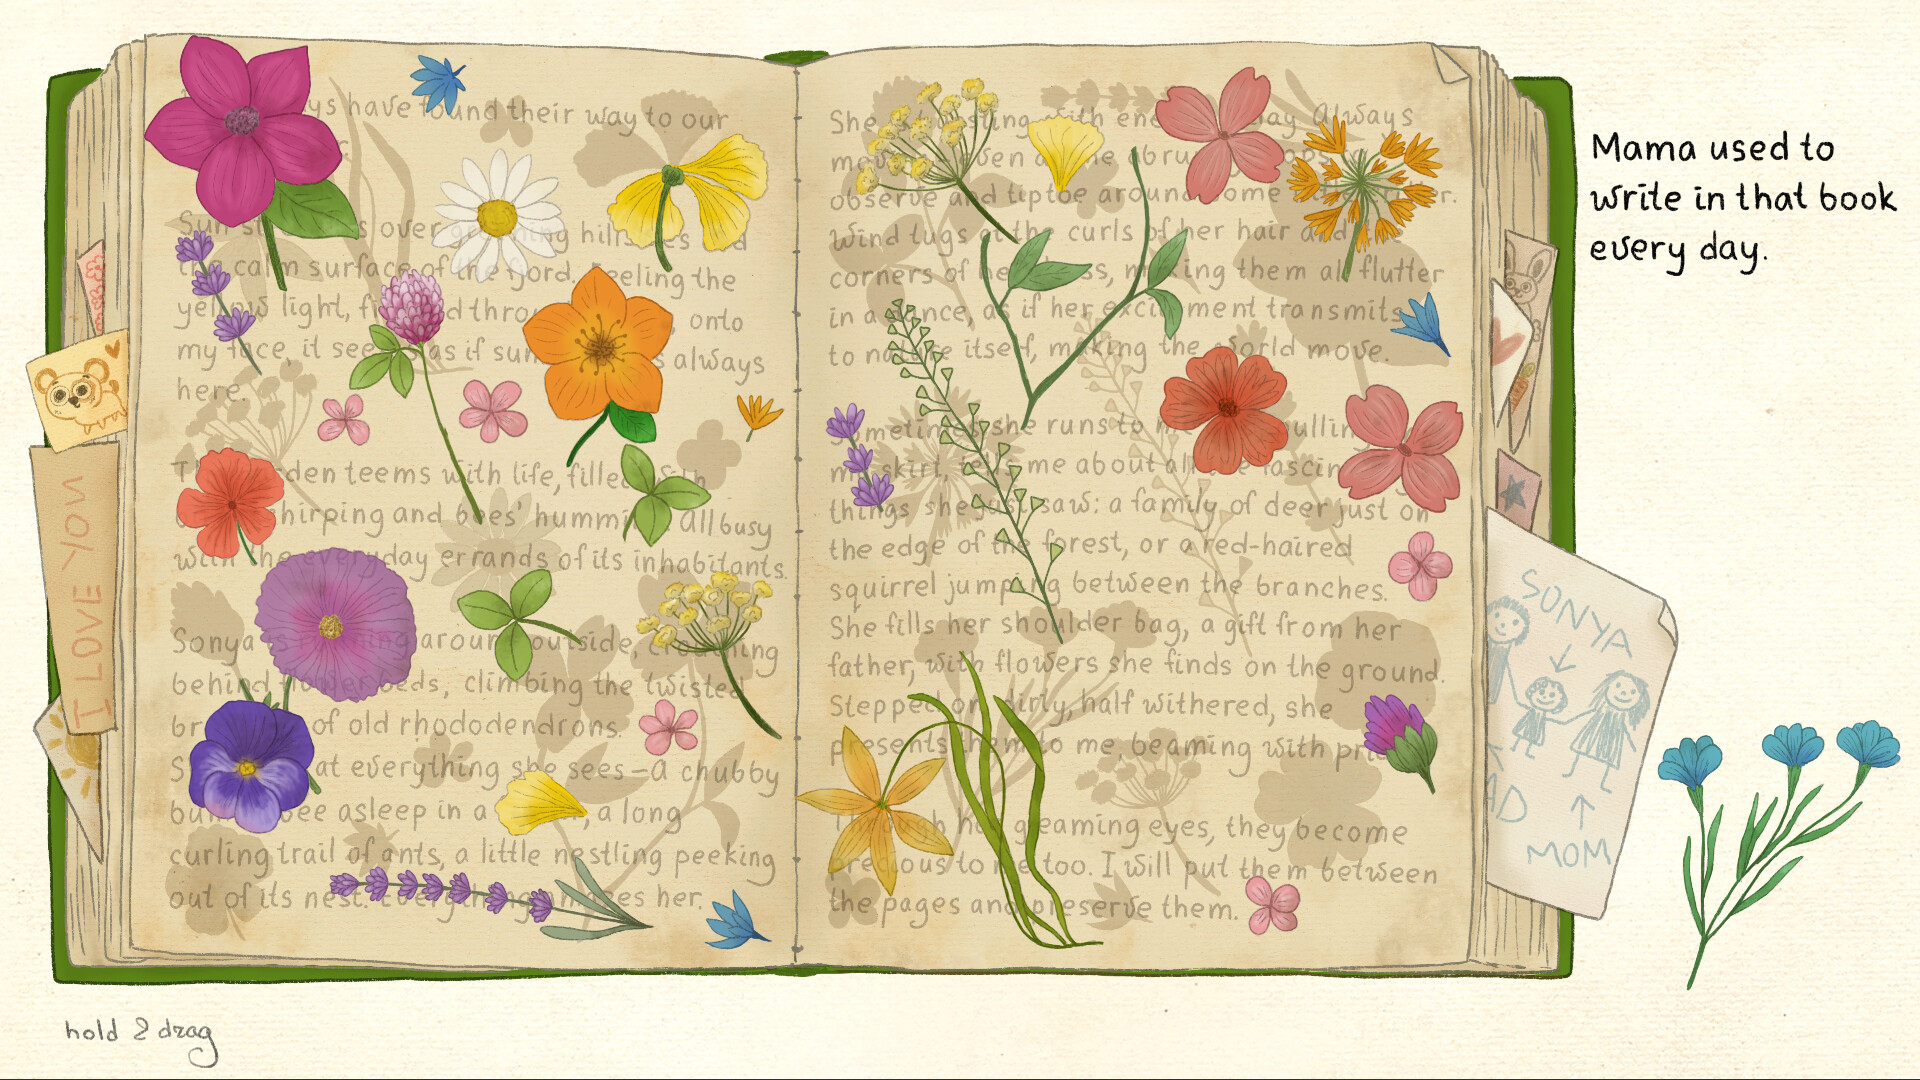 ys have found their way to our
Sun s s over hills es d
the calm surface of the fjord. Feeling the
yellow light, fi d thro , onto
my face, it see as if sun s always
here.
T den teems with life, filled with
chirping and bees' hummi All busy
with the everyday errands of its inhabitants.
Sonya is running around outside, crouching
behind flower beds, climbing the twisted
br of old rhododendrons.
S at everything she sees—a chubby
bumblebee asleep in a , a long
curling trail of ants, a little nestling peeking
out of its nest. Everything amazes her.
She sting with ene ay Always
mo even a he abru ops
observe and tiptoe around some r.
Wind tugs at the curls of her hair and the
corners of her dress, making them all flutter
in a dance, as if her excitement transmits
to nature itself, making the world move.
Sometimes she runs to me pulling
my skirt, tells me about all the fascin
things she just saw: a family of deer just on
the edge of the forest, or a red-haired
squirrel jumping between the branches.
She fills her shoulder bag, a gift from her
father, with flowers she finds on the ground.
Stepped on, dirty, half withered, she
presents them to me, beaming with pri
Through her gleaming eyes, they become
precious to me too. I will put them between
the pages and preserve them.
Mama used to
write in that book
every day.
I LOVE YOU
SONYA
AD
MOM
hold & drag